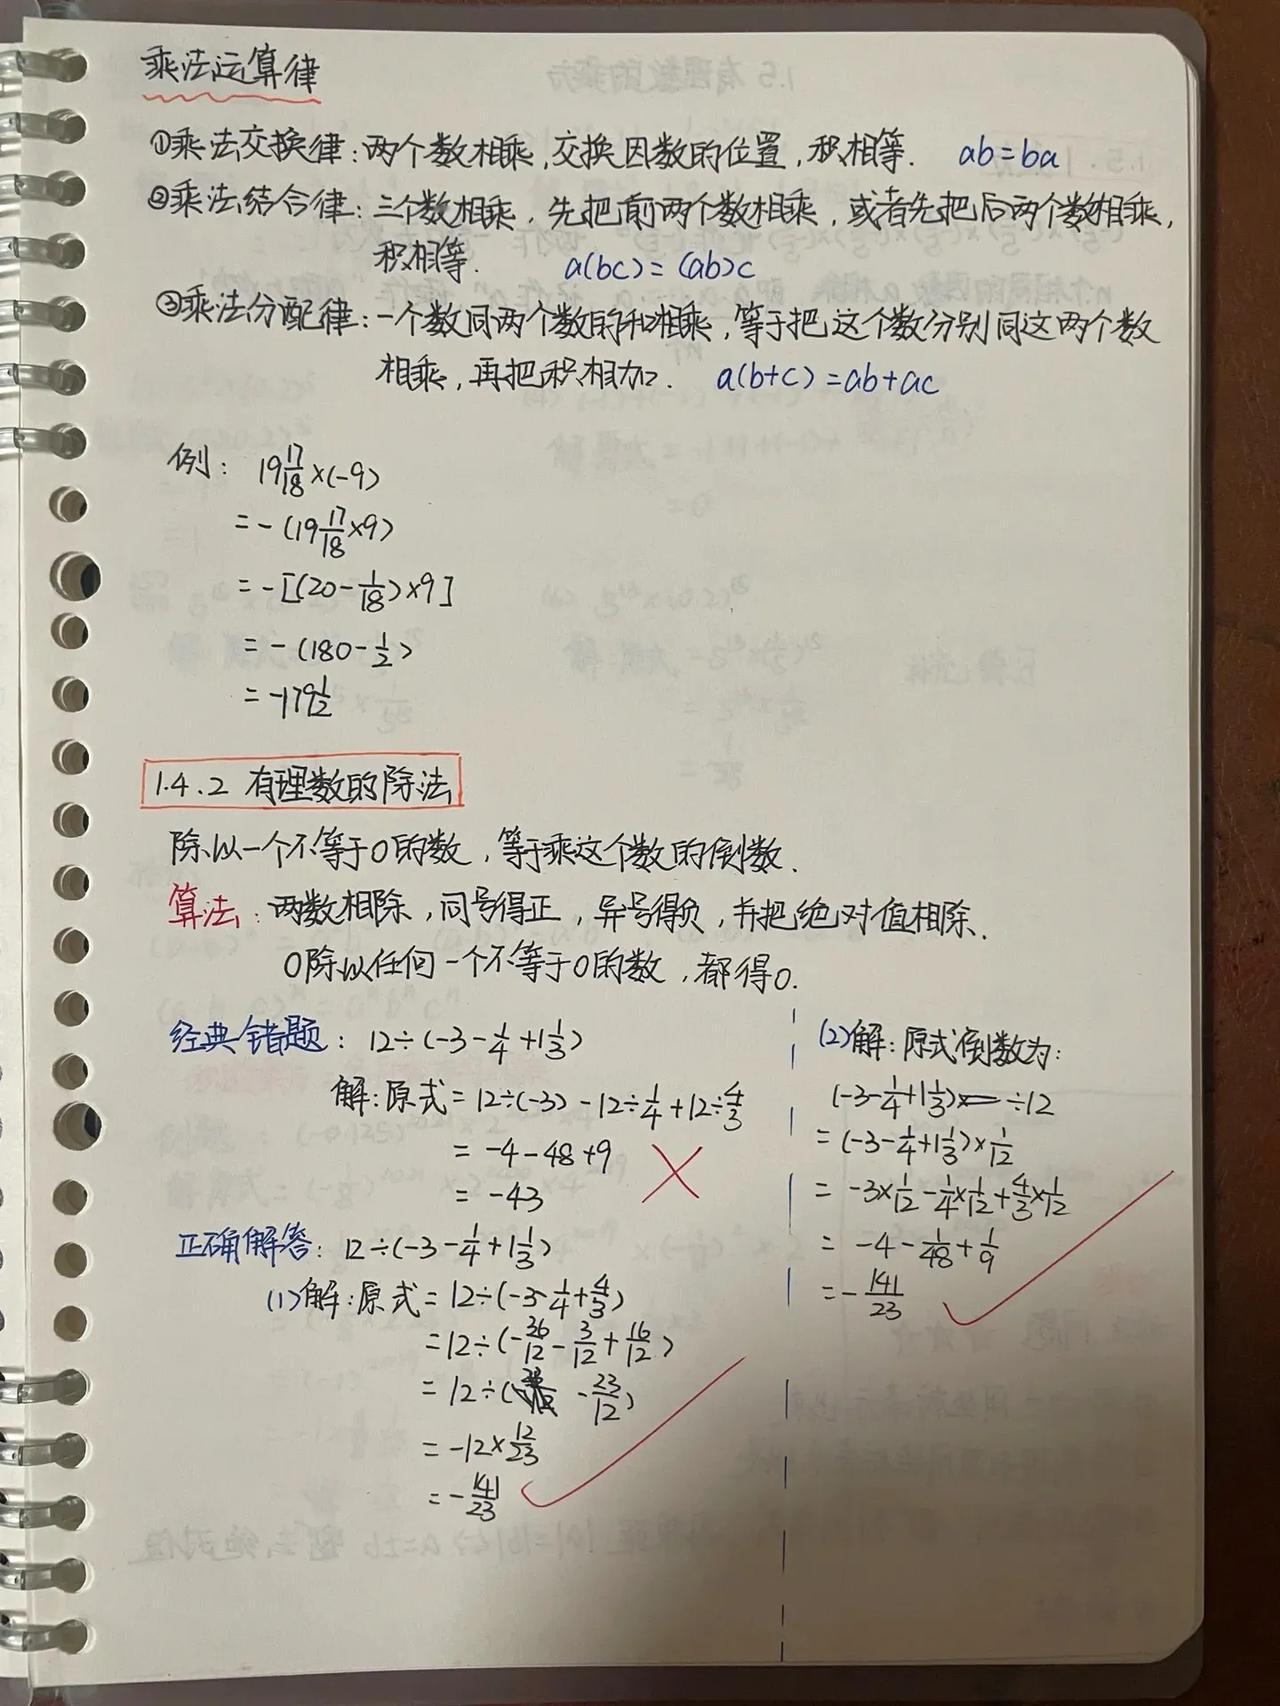 乘法运算律
①乘法交换律：两个数相乘，交换因数的位置，积相等. ab=ba
②乘法结合律：三个数相乘，先把前两个数相乘，或者先把后两个数相乘，
积相等. a(bc)=(ab)c
③乘法分配律：一个数同两个数的和相乘，等于把这个数分别同这两个数
相乘，再把积相加. a(b+c)=ab+ac
例： 19 17/18×(-9)
=-(19 17/18×9)
=-[(20-1/18)×9]
=-(180-1/2)
=-179 1/2
1.4.2 有理数的除法
除以一个不等于0的数，等于乘这个数的倒数.
算法：两数相除，同号得正，异号得负，并把绝对值相除.
0除以任何一个不等于0的数，都得0.
经典错题：12÷(-3-1/4+1 1/3)
解：原式=12÷(-3)-12÷1/4+12÷4/3
=-4-48+9
=-43
正确解答：12÷(-3-1/4+1 1/3)
(1)解：原式=12÷(-3-1/4+4/3)
=12÷(-36/12-3/12+16/12)
=12÷(-23/12)
=-12×12/23
=-141/23
(2)解：原式倒数为：
(-3-1/4+1 1/3)÷12
=(-3-1/4+1 1/3)×1/12
=-3×1/12-1/4×1/12+4/3×1/12
=-4-1/48+1/9
=-141/23